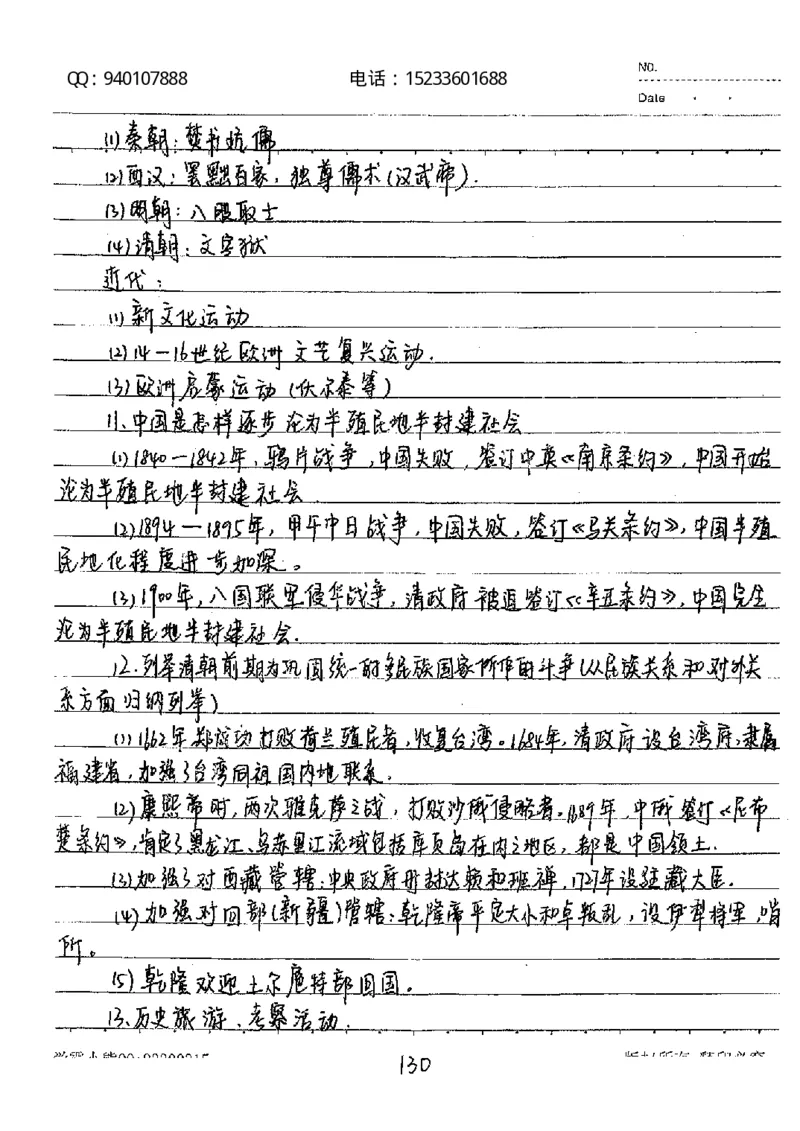 NO.
QQ：940107888 电话：15233601688
Date
(1)秦朝：焚书坑儒
(2)西汉：罢黜百家，独尊儒术(汉武帝).
(3)明朝：八股取士
(4)清朝：文字狱
近代：
(1)新文化运动
(2)14－16世纪欧洲文艺复兴运动.
(3)欧洲启蒙运动(伏尔泰等)
11、中国是怎样逐步沦为半殖民地半封建社会
(1)1840－1842年，鸦片战争，中国失败，签订中英《南京条约》，中国开始
沦为半殖民地半封建社会
(2)1894－1895年，甲午中日战争，中国失败，签订《马关条约》，中国半殖
民地化程度进一步加深。
(3)1900年，八国联军侵华战争，清政府被迫签订《辛丑条约》，中国完全
沦为半殖民地半封建社会.
12.列举清朝前期为巩固统一的多民族国家所作的斗争(从民族关系和对外关
系方面归纳列举)
(1)1662年郑成功打败荷兰殖民者，收复台湾。1684年，清政府设台湾府，隶属
福建省，加强了台湾同祖国内地联系.
(2)康熙帝时，两次雅克萨之战，打败沙俄侵略者。1689年，中俄签订《尼布
楚条约》，肯定了黑龙江、乌苏里江流域包括库页岛在内之地区，都是中国领土.
(3)加强了对西藏管辖：中央政府册封达赖和班禅，1727年设驻藏大臣.
(4)加强对回部(新疆)管辖：乾隆帝平定大小和卓叛乱，设伊犁将军，哨
所。
(5)乾隆欢迎土尔扈特部回国。
13、历史旅游、考察活动.
130